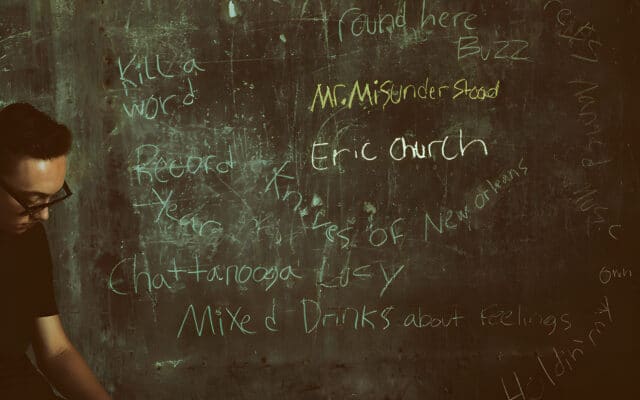 round here
Buzz
Kill a
word
Mr. Misunderstood
Eric Church
Record
Year
Knives of New Orleans
Chattanooga Lucy
Mixed Drinks about feelings
Holdin' my
own
Named Music